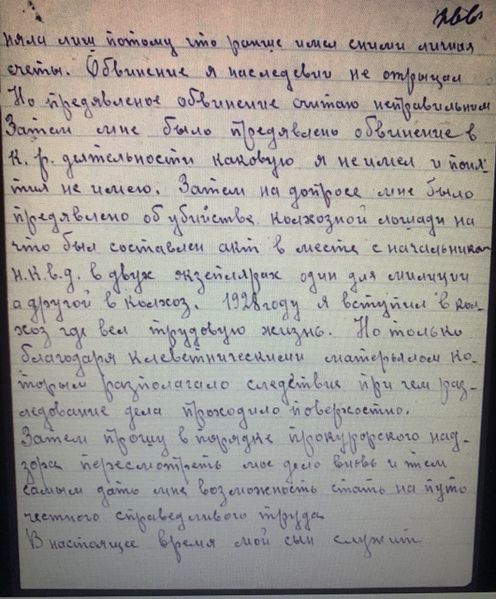 няла лиш потому что ранше имел сними личныя
счеты. Обвинение я наследевии не отрыцал
Но предявленое обвинение считаю неправильным
Затем мне было предявлено обвинение в
К. р. деятельности каковую я не имел и поня-
тия не имею. Затем на допросе мне было
предявлено об убийстве колхозной лошади на
что был составлен акт в месте с начальником
н.к.в.д. в двух экземплярах один для милиции
а другой в колхоз. 1928 году я вступил в кол-
хоз где вел трудовую жизнь. Но только
благодаря клеветническими матерьялом ко-
торым разполагало следствие при чем рас-
ледование дела проходило поверхостно.
Затем прошу в порядке прокурорского над-
зора пересмотреть мое дело вновь и тем
самым дать мне возможность стать на путо
честного справедливого труда
В настоящее время мой сын служит